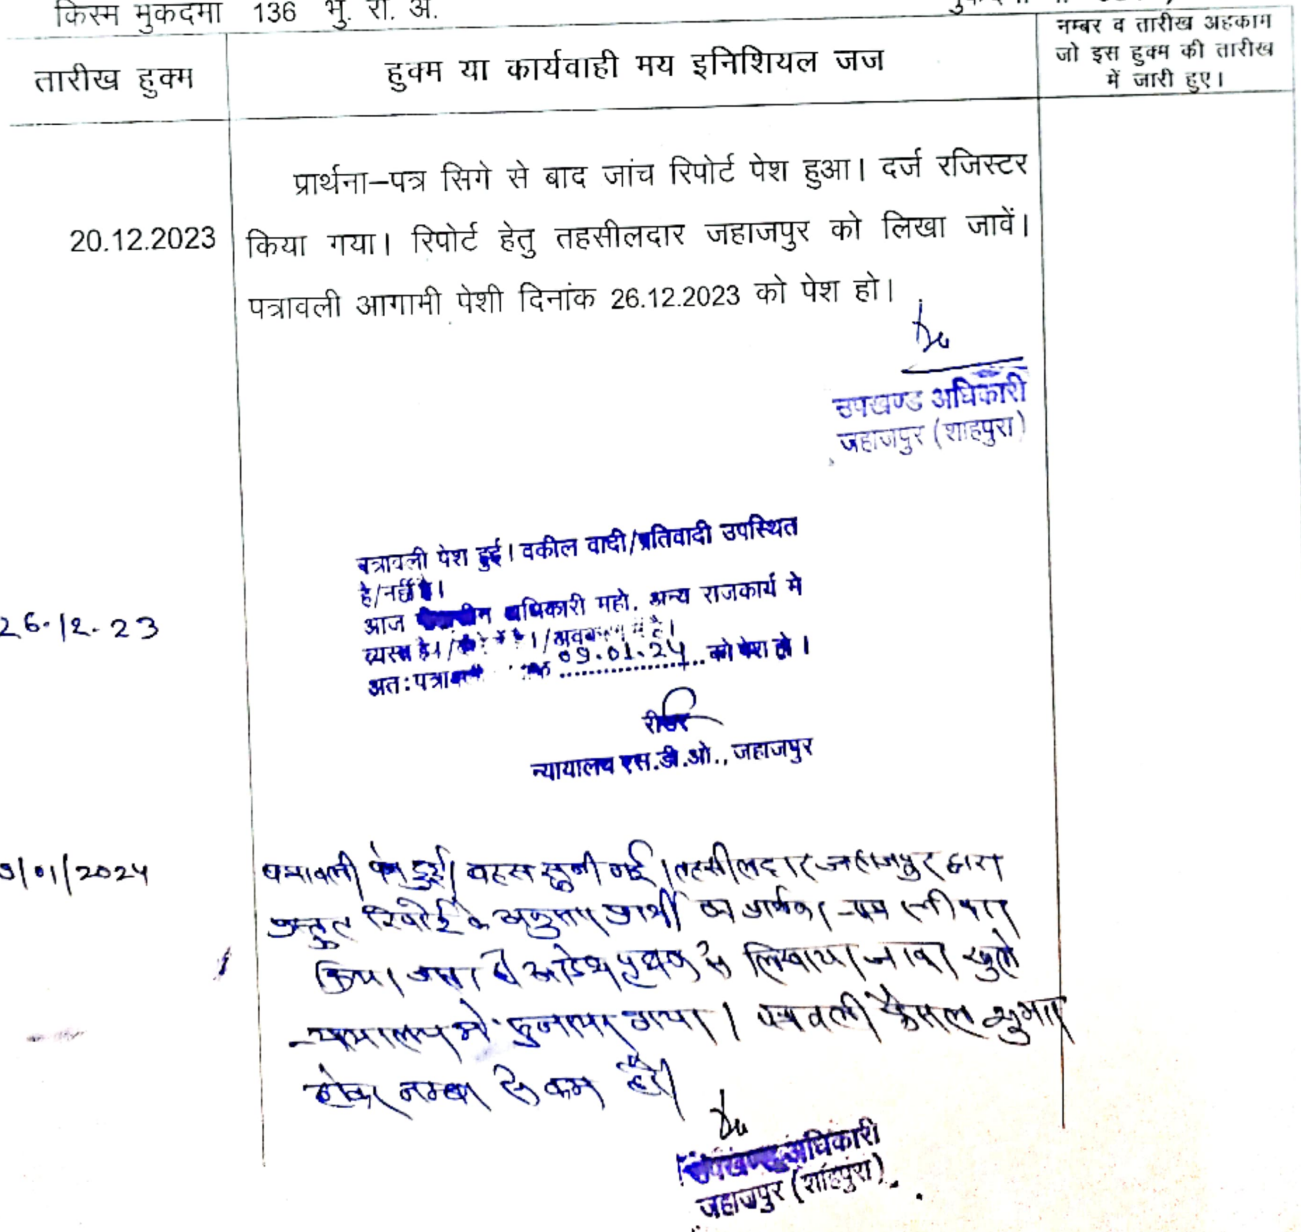 किस्म मुकदमा 136 भु. रा. अ.
नम्बर व तारीख अहकाम
जो इस हुक्म की तारीख
में जारी हुए।
तारीख हुक्म
हुक्म या कार्यवाही मय इनिशियल जज
प्रार्थना–पत्र सिगे से बाद जांच रिपोर्ट पेश हुआ। दर्ज रजिस्टर
20.12.2023 किया गया। रिपोर्ट हेतु तहसीलदार जहाजपुर को लिखा जावें।
पत्रावली आगामी पेशी दिनांक 26.12.2023 को पेश हो।
उपखण्ड अधिकारी
जहाजपुर (शाहपुरा)
पत्रावली पेश हुई। वकील वादी/प्रतिवादी उपस्थित
है/नहीं है।
26.12.23
आज अधिकारी महो. अन्य राजकार्य मे
व्यस्त है।
अतः पत्रावली 09.01.24 को पेश हो।
रीडर
न्यायालय एस.डी.ओ., जहाजपुर
9/01/2024 पत्रावली पेश हुई। बहस सुनी गई। तहसीलदार जहाजपुर द्वारा
प्रस्तुत रिपोर्ट के अनुसार प्रार्थी का प्रार्थना-पत्र स्वीकार
किया जाता है आदेश पृथक से लिखाया जाकर खुले
न्यायालय मे सुनाया गया। पत्रावली फैसल शुमार
होकर नम्बर से कम हो।
उपखण्ड अधिकारी
जहाजपुर (शाहपुरा)